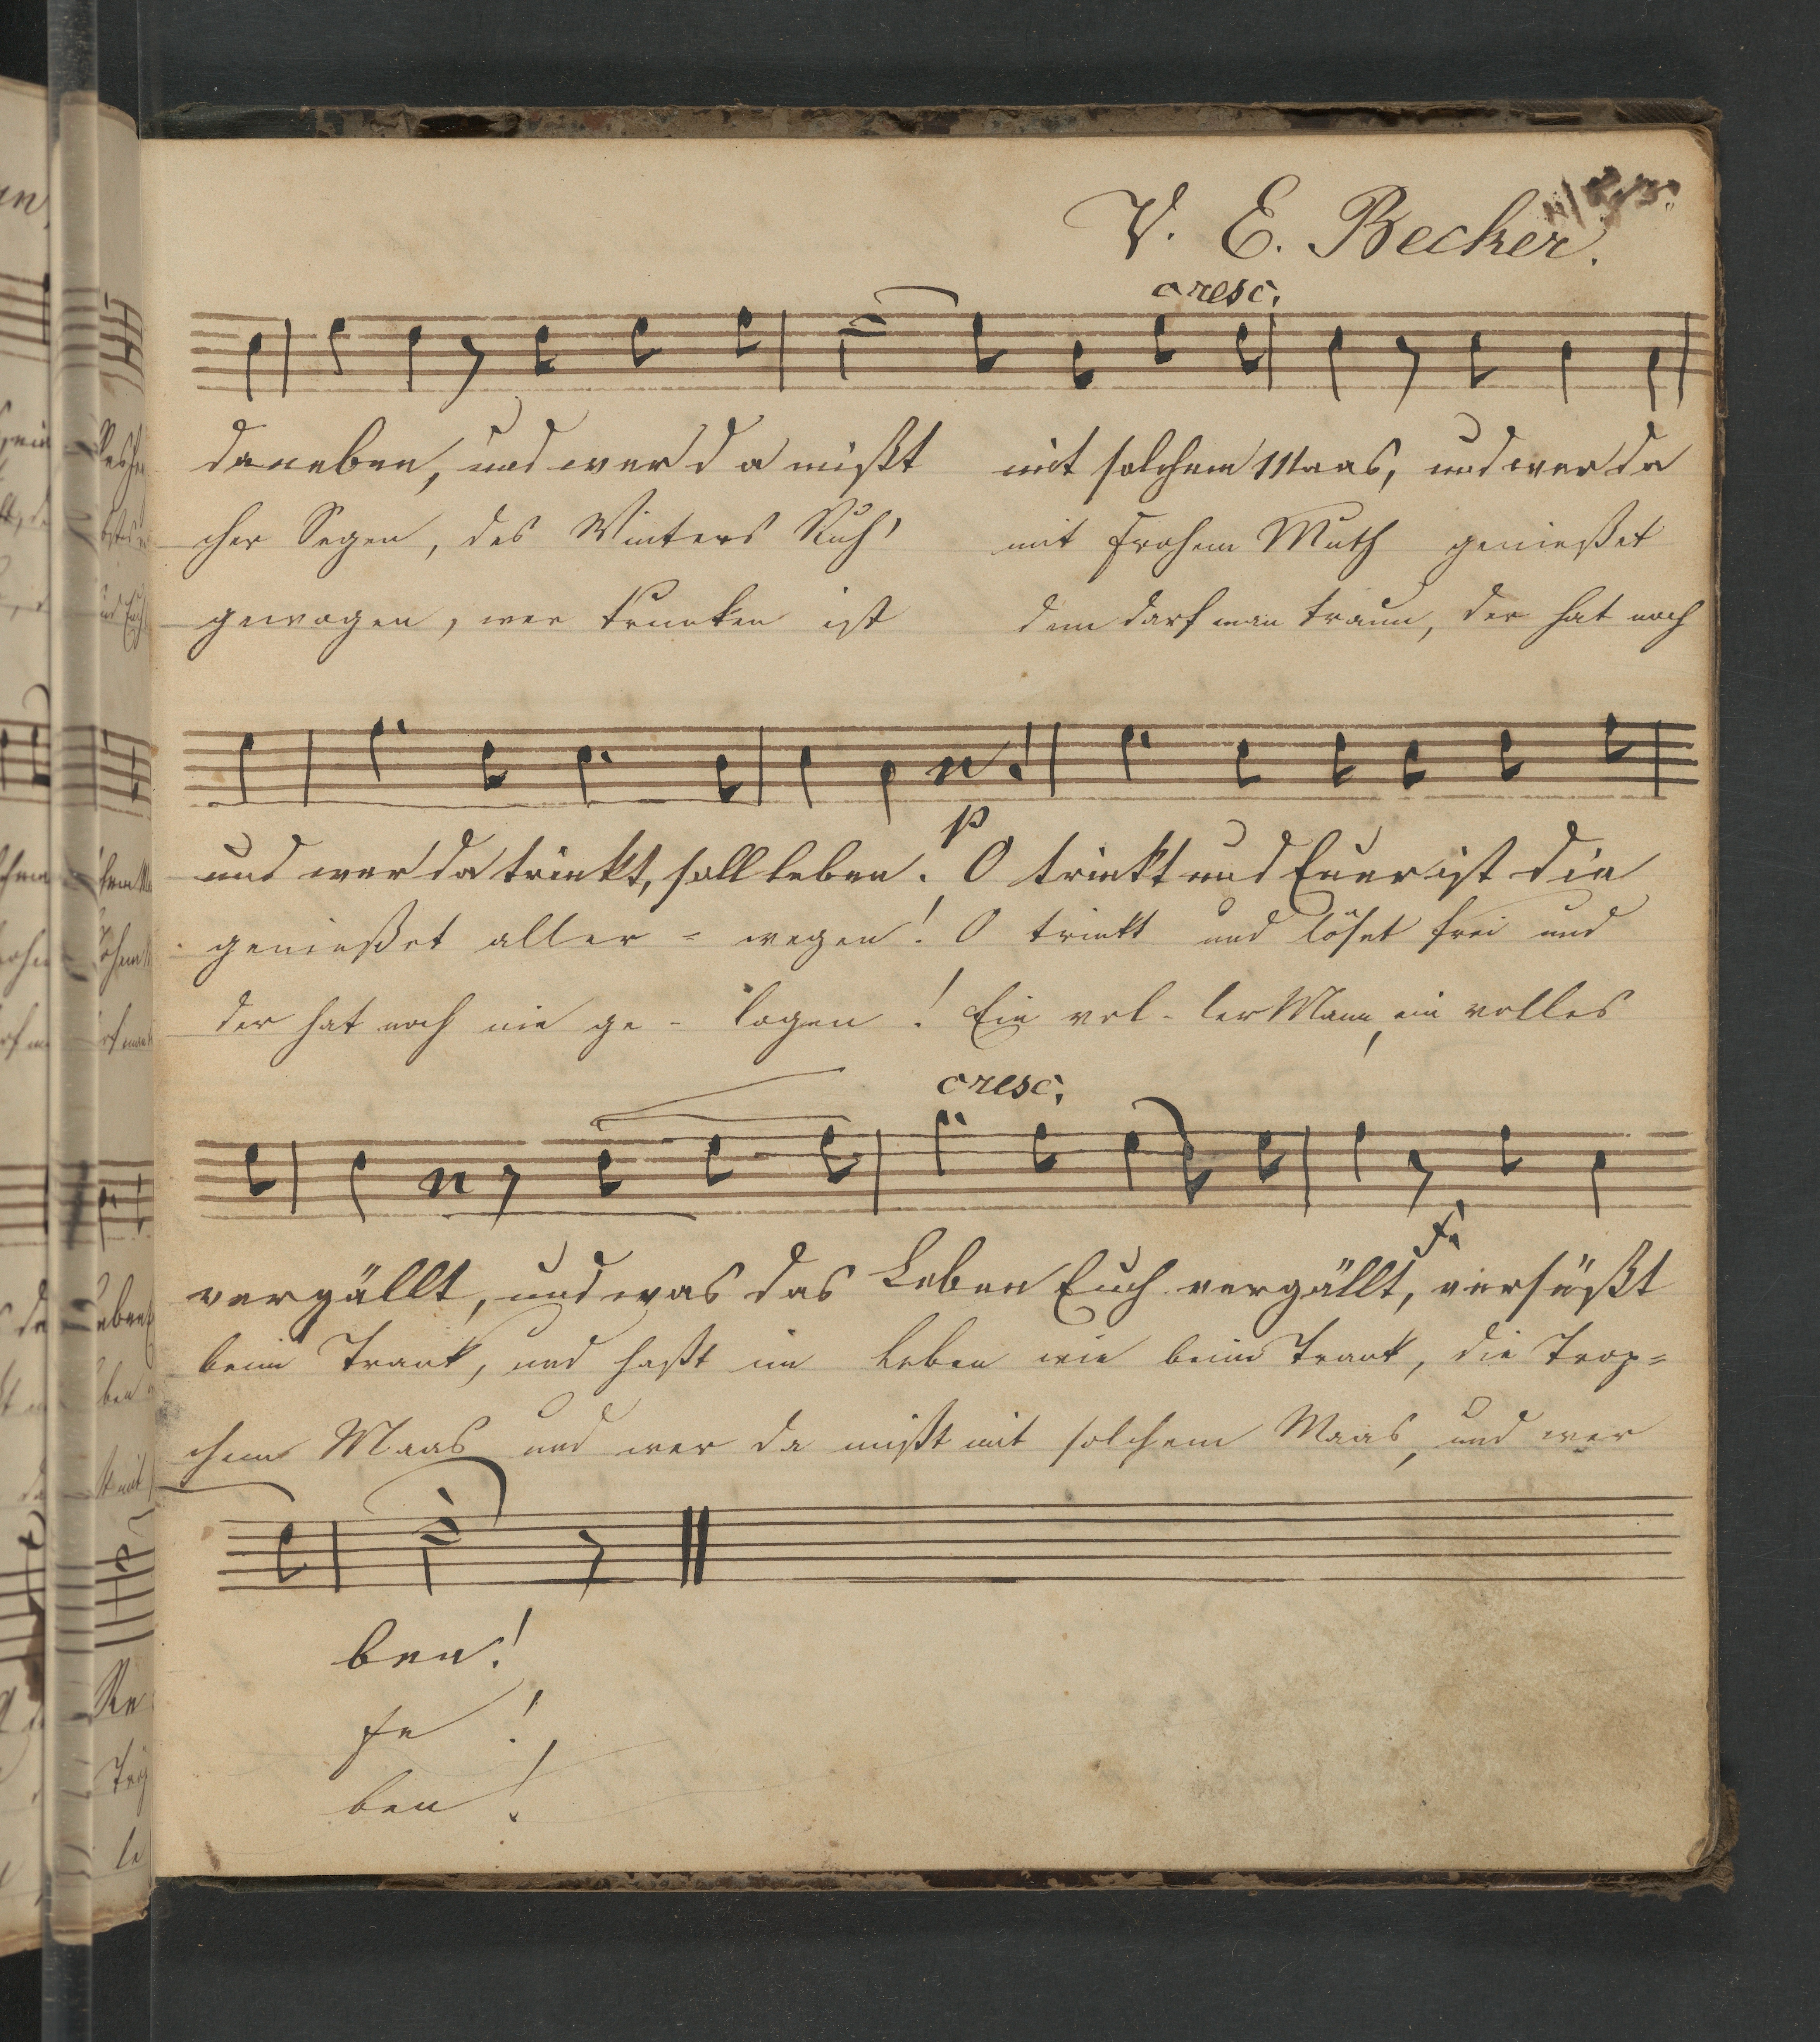 V. E. Becker.
cresc.
daneben, und wer da mißt mit solchem Maas, und wer da
cher Segen, des Winters Ruh' mit frohem Muth genießet
gewogen, wer trunken ist dem darf man traun, der hat noch
p
und wer da trinkt, soll leben. O trinkt und Euer ist die
genießet aller = wegen! O trinkt und löset frei und
der hat noch nie ge - logen! Ein vol - ler Mann, ein volles
cresc.
vergällt, und was das Leben Euch vergällt, versüßt
beim Trank, und haßt im Leben wie beim Trank, die Trop=
chem Maas und wer da mißt mit solchem Maas, und wer
ben!
fe!
ben!